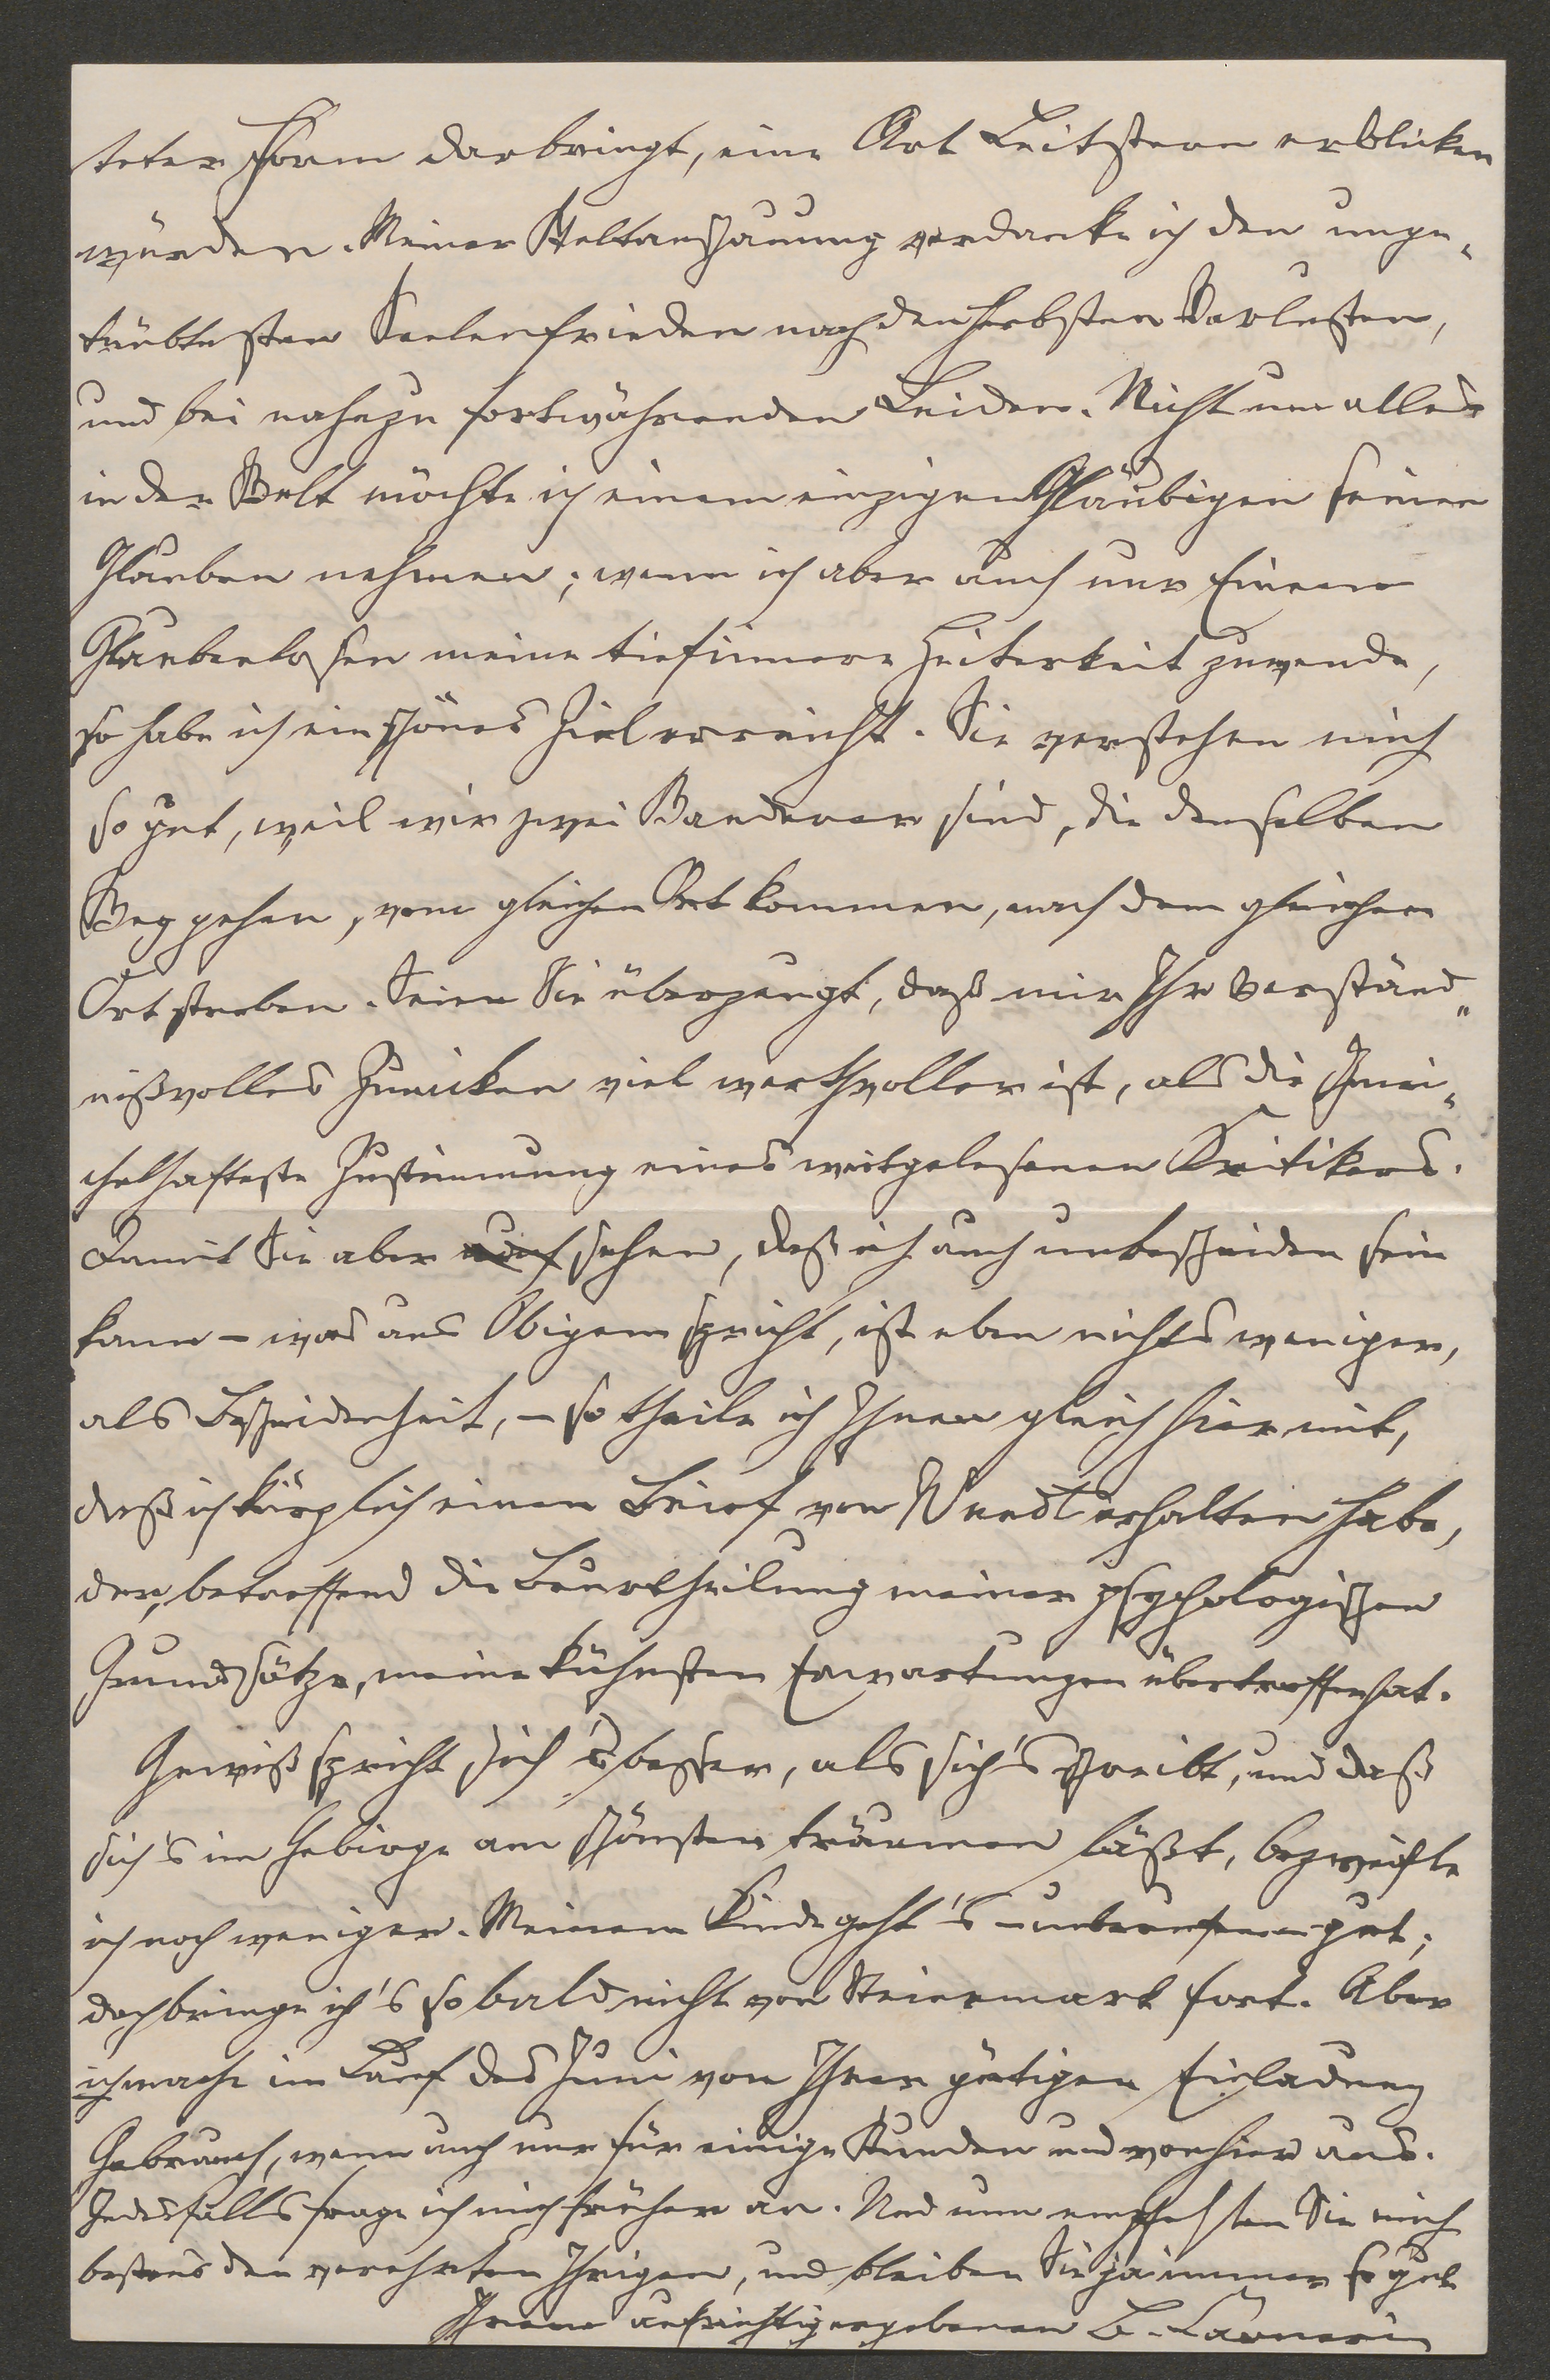 teter Form darbringt, eine Art Leitstern erblicken
würden. Meiner Weltanschauung verdanke ich den unge-
trübtesten Seelenfrieden nach den herbsten Verlusten,
und bei nahezu fortwährenden Leiden. Nicht um alles
in der Welt möchte ich einem einzigen Gläubigen seinen
Glauben nehmen; wenn ich aber auch nur Einem
Glaubenlosen meine tiefinnere Heiterkeit zuwende,
so habe ich ein schönes Ziel erreicht. Sie verstehen mich
so gut, weil wir zwei Wanderer sind, die denselben
Weg gehen, vom gleichen Ort kommen, nach dem gleichen
Ort streben. Seien Sie überzeugt, daß mir Ihr verständ-
nißvolles Zunicken viel werthvoller ist, als die schmei-
chelhafteste Zustimmung eines weitgelesenen Kritikers.
Damit Sie aber auch sehen, daß ich auch unbescheiden sein
kann – was aus Obigem spricht, ist eben nichts weniger,
als Bescheidenheit, – so theile ich Ihnen gleich hier mit,
daß ich kürzlich einen Brief von Wundt erhalten habe,
der, betreffend die Beurtheilung meiner psychologischen
Grundsätze, meine kühnsten Erwartungen übertroffen hat.
Gewiß spricht sich's besser, als sich's schreibt, und daß
sich's im Gebirge am schönsten träumen läßt, bezweifle
ich noch weniger. Meinem Kinde geht's – unberufen – gut;
doch bringe ich's sobald nicht von Steiermark fort. Aber
ich mache im Lauf des Juni von Ihrer gütigen Einladung
Gebrauch, wenn auch nur für einige Stunden und von hier aus.
Jedesfalls frage ich mich früher an. Und nun empfehlen Sie mich
bestens den verehrten Ihrigen, und bleiben Sie ja immer so gut
Ihrem aufrichtig ergebenen B. Carneri